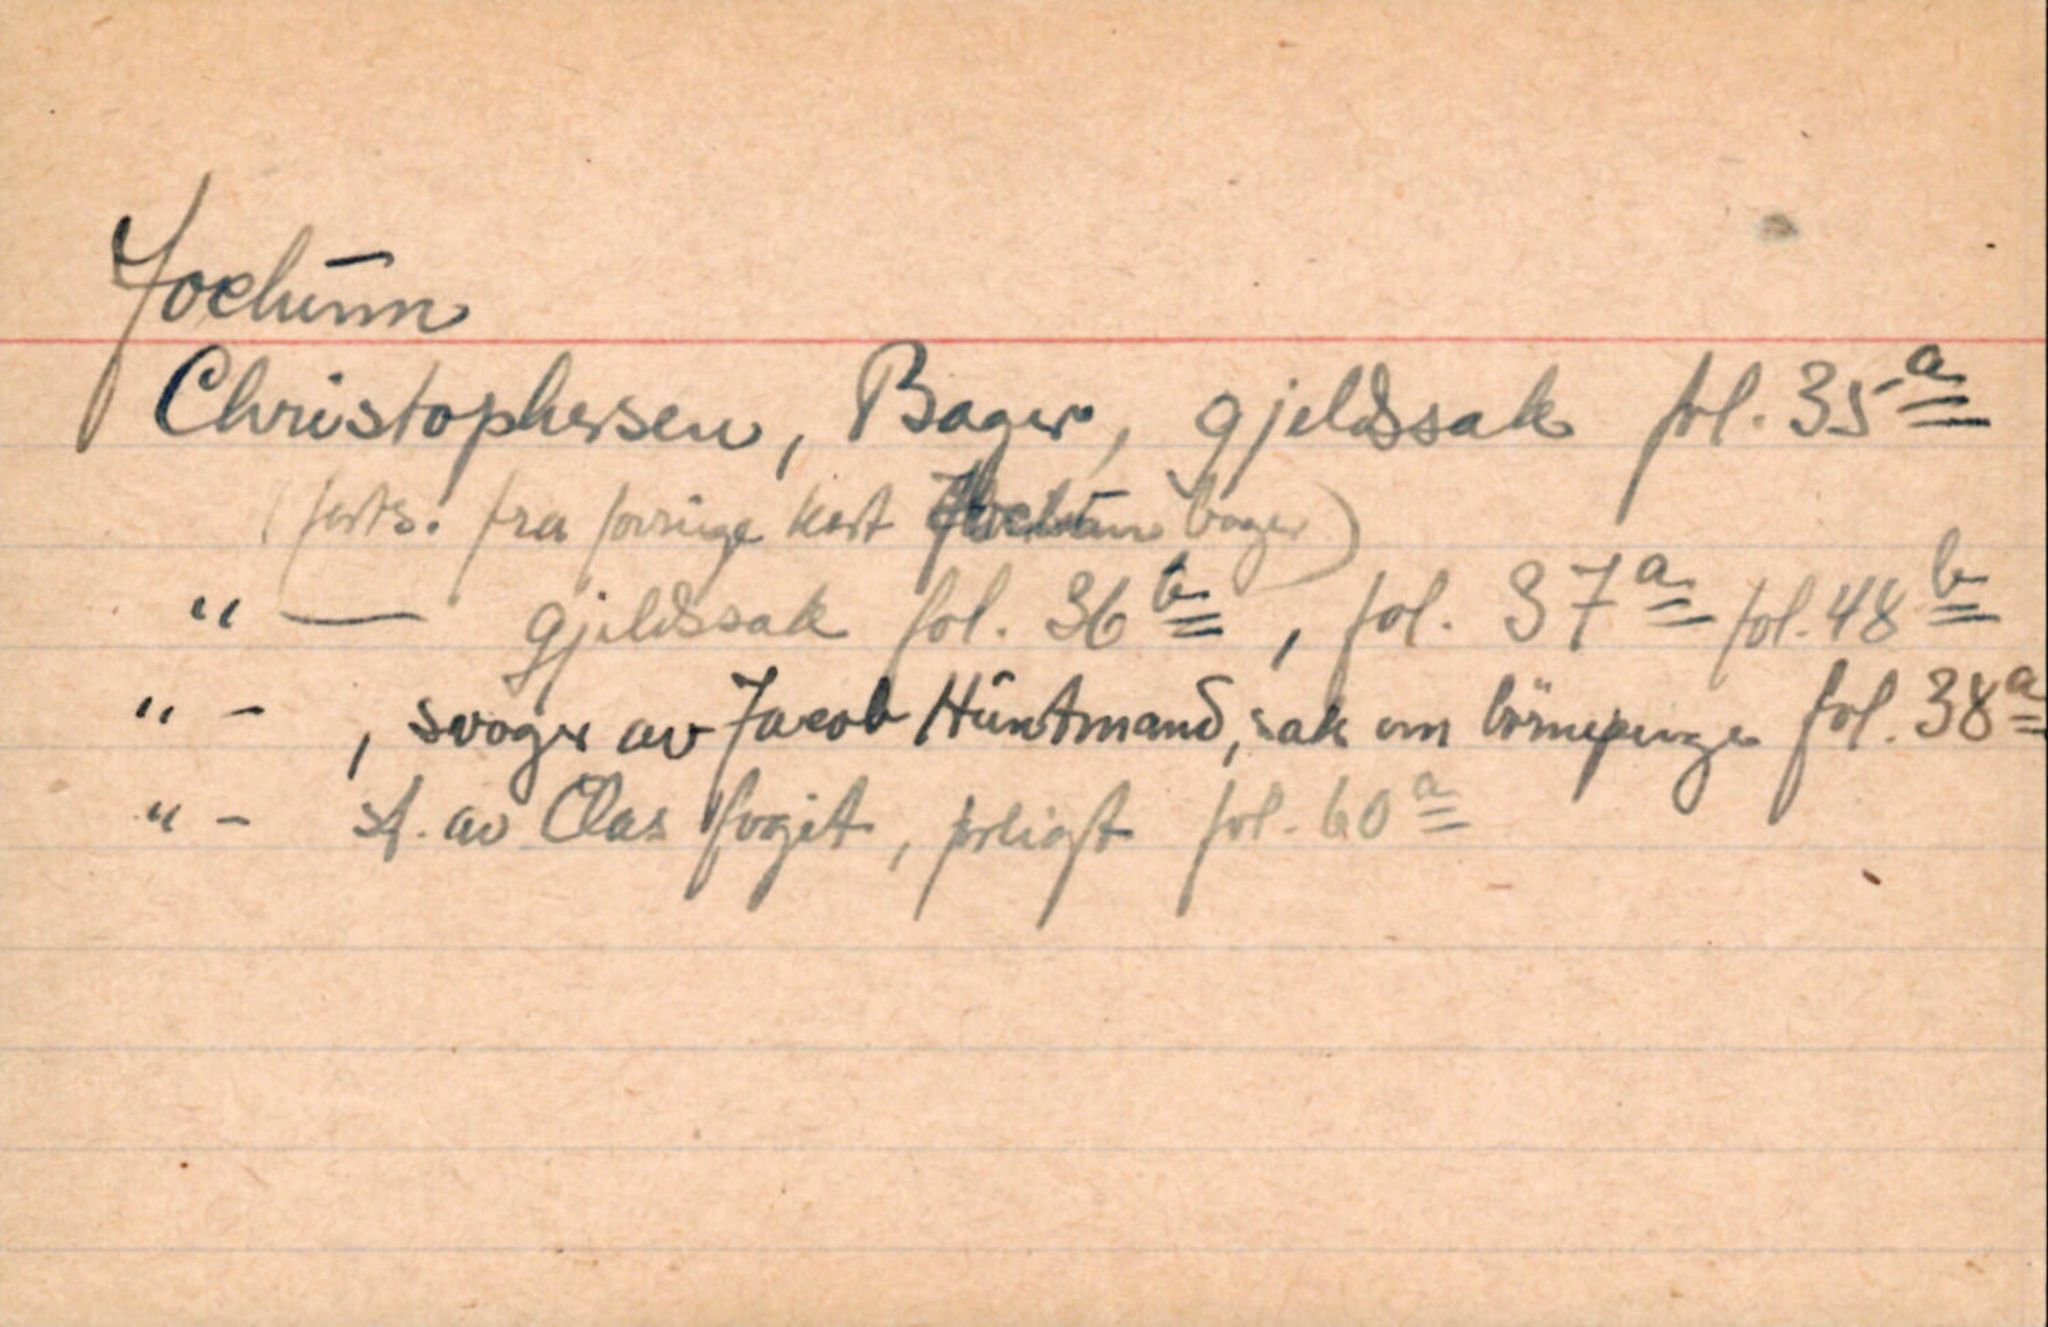 Jochum
Christophersen, Bager, gjeldssak fol. 35a
(forts. fra forrige kort Jochum bager)
" — gjeldssak fol. 36b, fol. 37a fol. 48b
" - , svoger av Jacob Huntmand, sak om börnepenge fol. 38a
" - st. av Clas fogit, forligt fol. 60a